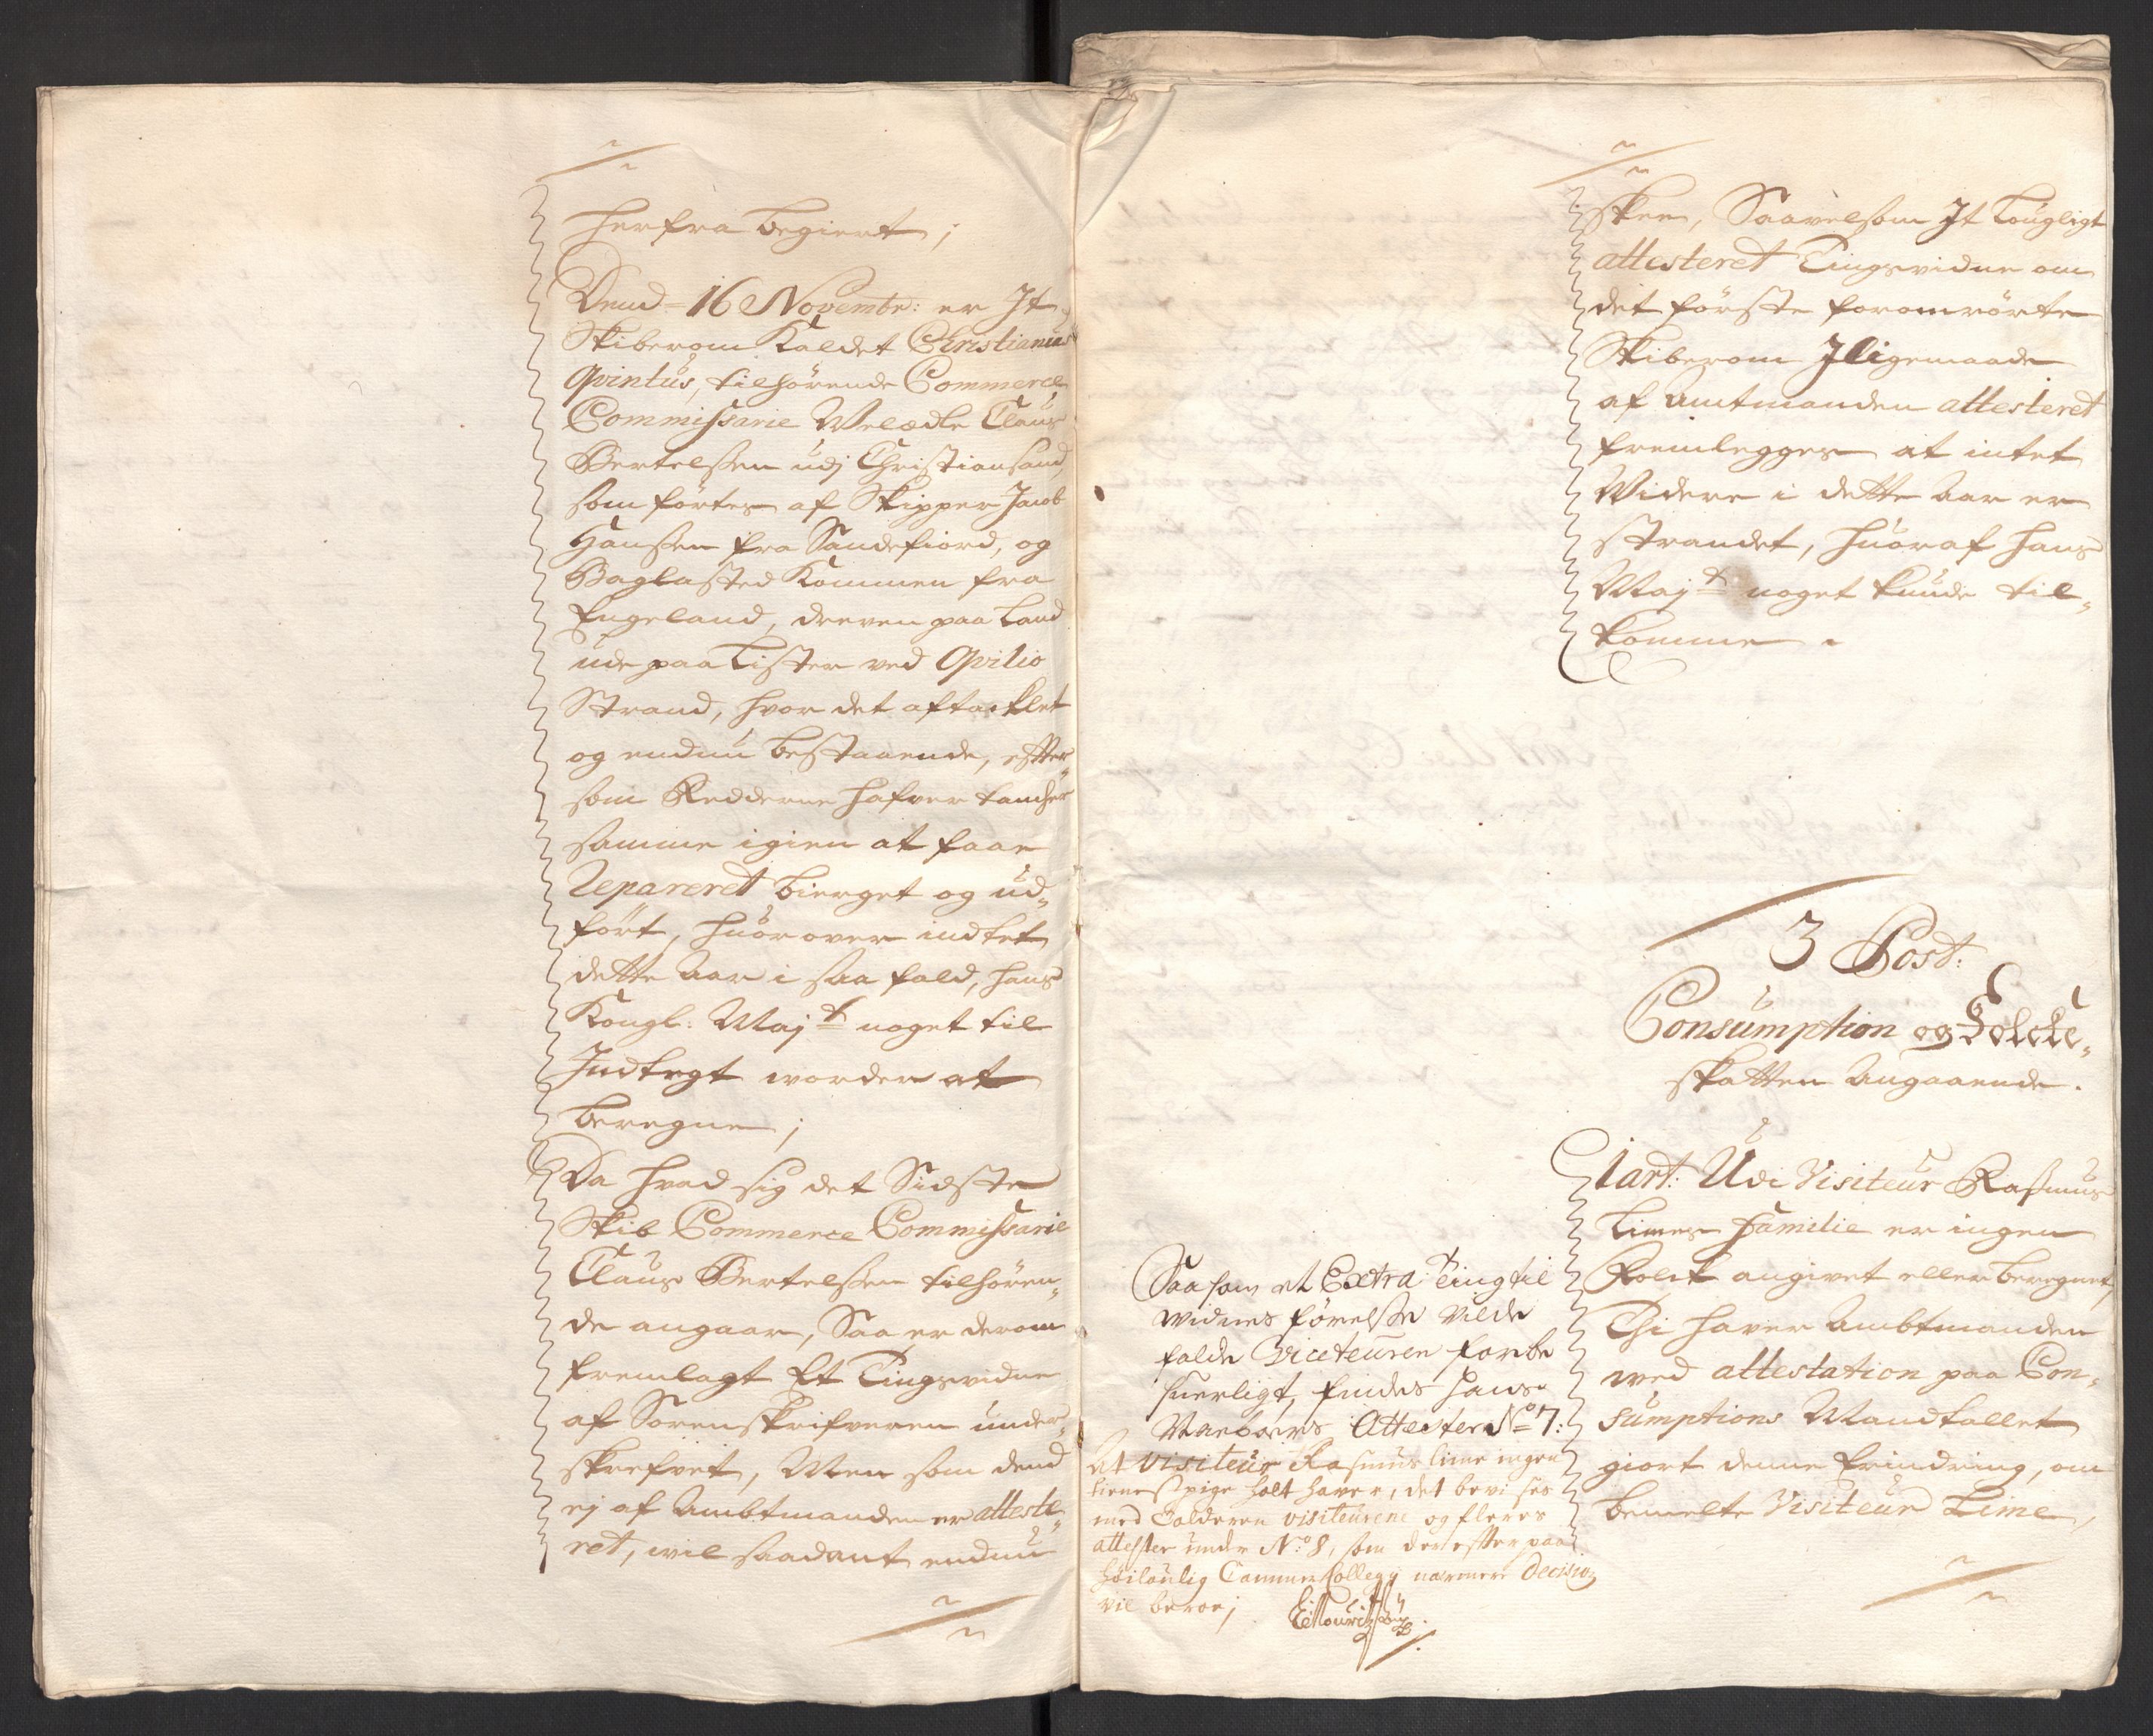 herfra begiert;
Dend 16 Novembr: er It
Skiberom Kaldet Christianus
Qvintus, tilhörende Commerce
Commissarie Welædle Claus
Bertelssen udj Christiansand,
som förtes af Skipper Jacob
Hanssen fra Sandefiord, og
Baglasted Kommen fra
Engeland, dreven paa Land
ude paa Lister ved Qvilio
Strand, hvor det aftacklet
og endnu bestaaende, effter„
som Redderne hafver
samme igien at faae
Repareret bierget og ud„
fört, huorover indtet
dette Aar i saa fald, hans
Kongl: Maj.t noget til
Indtegt worden at
beregne;
Da hvad sig det Sidste
Skib Commerce Commissarie
Claus Bertelssen tilhören„
de angaar, Saa er derom
fremlagt Et Tingsvidne
af Sorenskrifveren under„
skrefvet, Men som dend
ej af Ambtmanden er atteste„
ret, wil saadant endnu
skee, Saavelsom It Lougligt
attesteret Tingsvidne om
det förste foromrörte
Skiberom Iligemaade
af Amtmanden attesteret
fremlegges at intet
Widere i dette Aar er
strandet, huoraf hans
Maj.t noget kunde til„
komme.
3 Post:
Consumption og Folcke„
skatten Angaaende.
1 art: Udi Visiteur Rasmus
Limes Familie er ingen
Folck angivet eller beregnet,
Thi haver Ambtmanden
med attestation paa Con„
sumptions Mandtallet
giort denne Erindring, om
bemelte Visiteur Lime,
Saasom et Extra: Ting til
widnes förelsse vilde
falde Viceteuren for be
suerligt, findes hans
Naboers Attester No 7:
At Visiteur Rasmus Lime ingen
tieneste pige holt haver, det bevises
med Tolderen visiteurene og fleres
attester under No: 8, som derefter paa
höilovlig Cammer Collegij nærmere Decision
vil beroe;